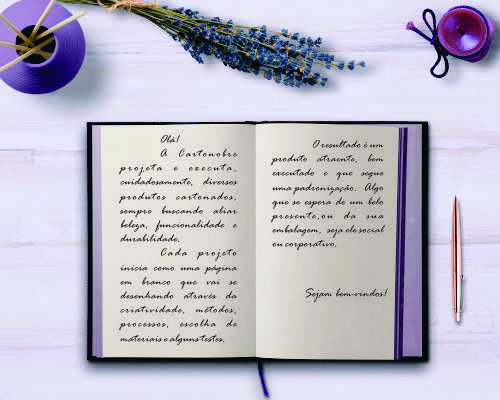 Olá!
A Cartonobre
projeta e executa,
cuidadosamente, diversos
produtos cartonados,
sempre buscando aliar
beleza, funcionalidade e
durabilidade.
Cada projeto
inicia como uma página
em branco que vai se
desenhando através da
criatividade, métodos,
processos, escolha de
materiais e alguns testes.
O resultado é um
produto atraente, bem
executado e que segue
uma padronização. Algo
que se espera de um belo
presente,ou da sua
embalagem, seja ele social
ou corporativo.
Sejam bem-vindos!